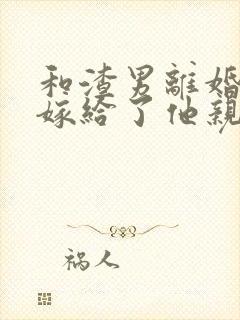 和渣男離婚
嫁給了他親
祸人